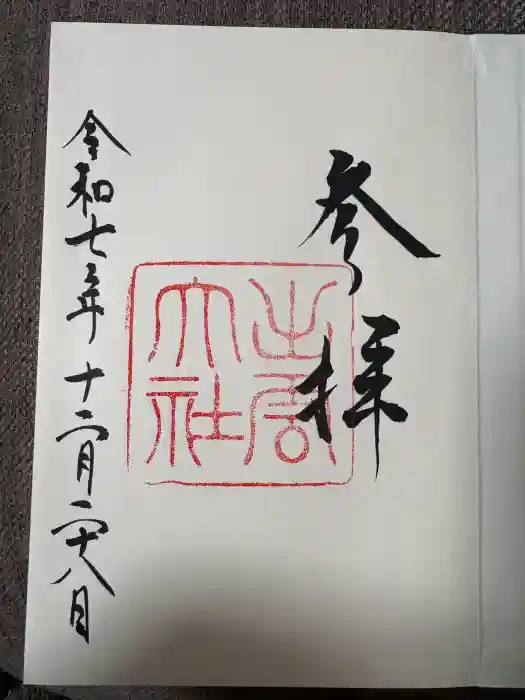 参拝
出雲大社
令和七年十二月二十八日